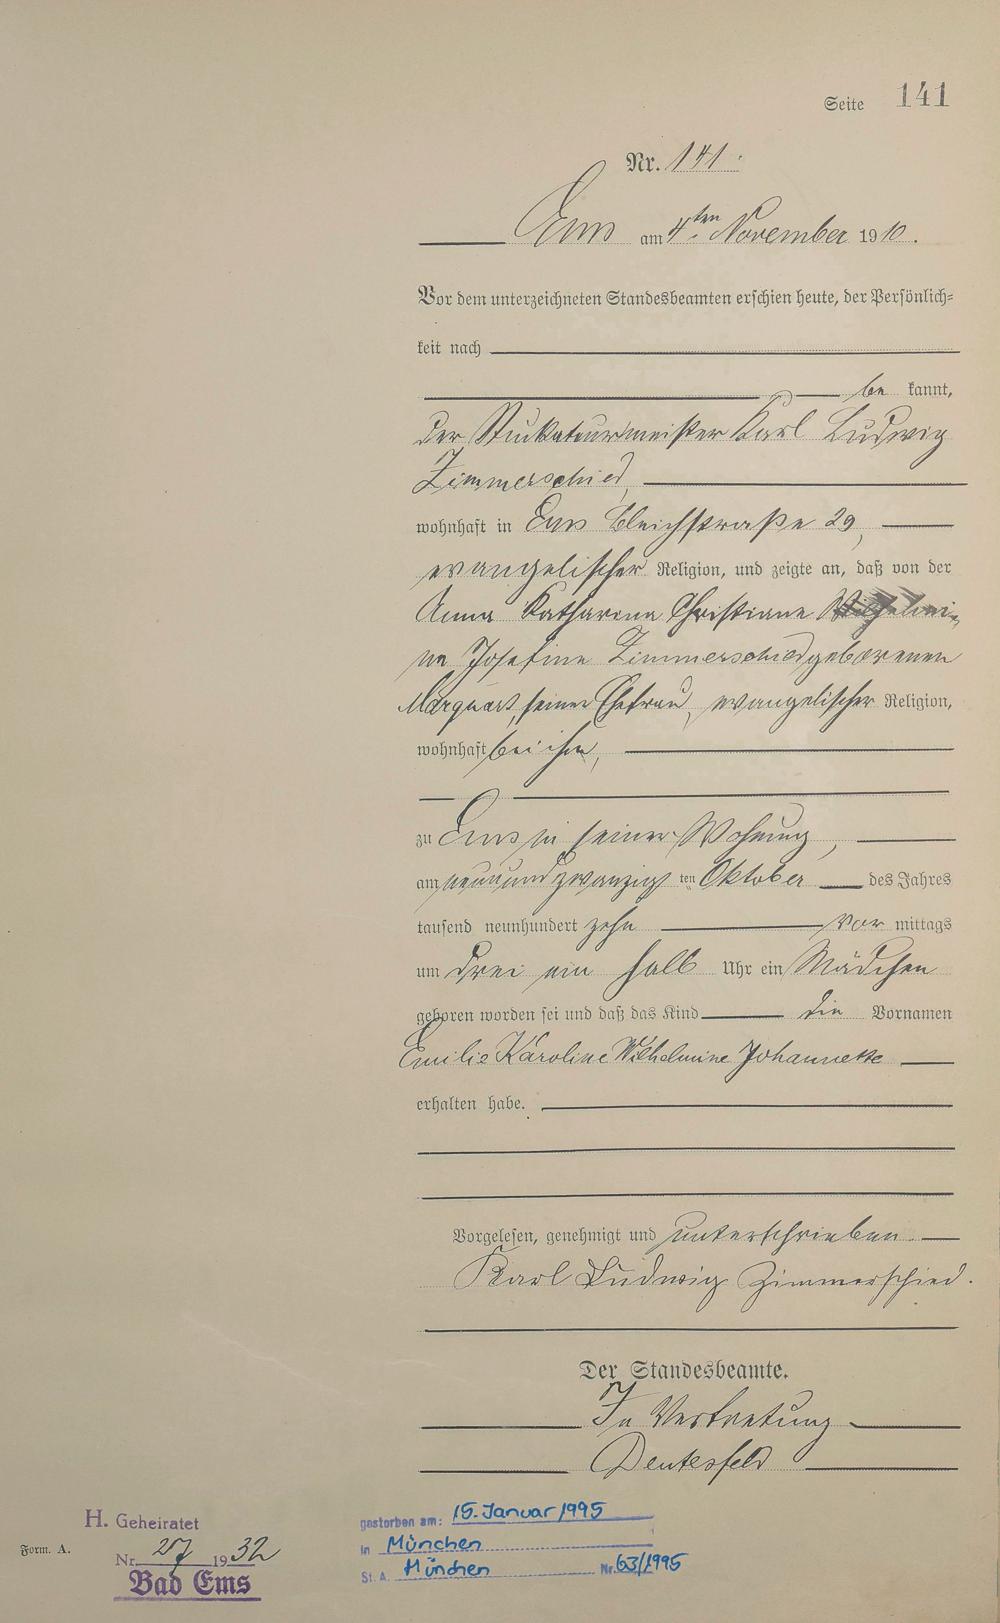 Seite 141
Nr. 141.
Ems am 4ten November 1910.
Vor dem unterzeichneten Standesbeamten erschien heute, der Persönlich=
keit nach
be kannt,
der Stukateurmeister Karl Ludwig
Zimmerschied,
wohnhaft in Ems Bleichstraße 29,
evangelischer Religion, und zeigte an, daß von der
Anna Katharena Christiane Wilhelmi-
ne Josefine Zimmerschied geborenen
Marquart, seiner Ehefrau, evangelischer Religion,
wohnhaft bei ihm,
zu Ems in seiner Wohnung,
am neunundzwanzigsten Oktober des Jahres
tausend neunhundert zehn vor mittags
um drei ein halb Uhr ein Mädchen
geboren worden sei und daß das Kind die Vornamen
Emilie Karoline Wilhelmine Johannette
erhalten habe.
Vorgelesen, genehmigt und unterschrieben
Karl Ludwig Zimmerschied.
Der Standesbeamte.
In Vertretung
H. Geheiratet
Nr. 27 1932
Bad Ems
Form. A.
gestorben am: 15. Januar 1995
in München
St. A. München Nr. 63/1995